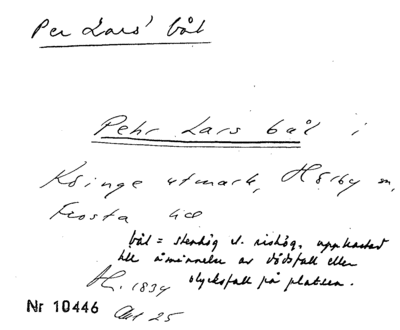 Per Lars' bål
Pehr Lars bål i
Köinge utmark, Hörby sn,
Frosta hd
bål = stenhög el. rishög, uppkastad
till åminnelse av dödsfall eller
olycksfall på platsen.
Hz. 1834
Nr 10446
25